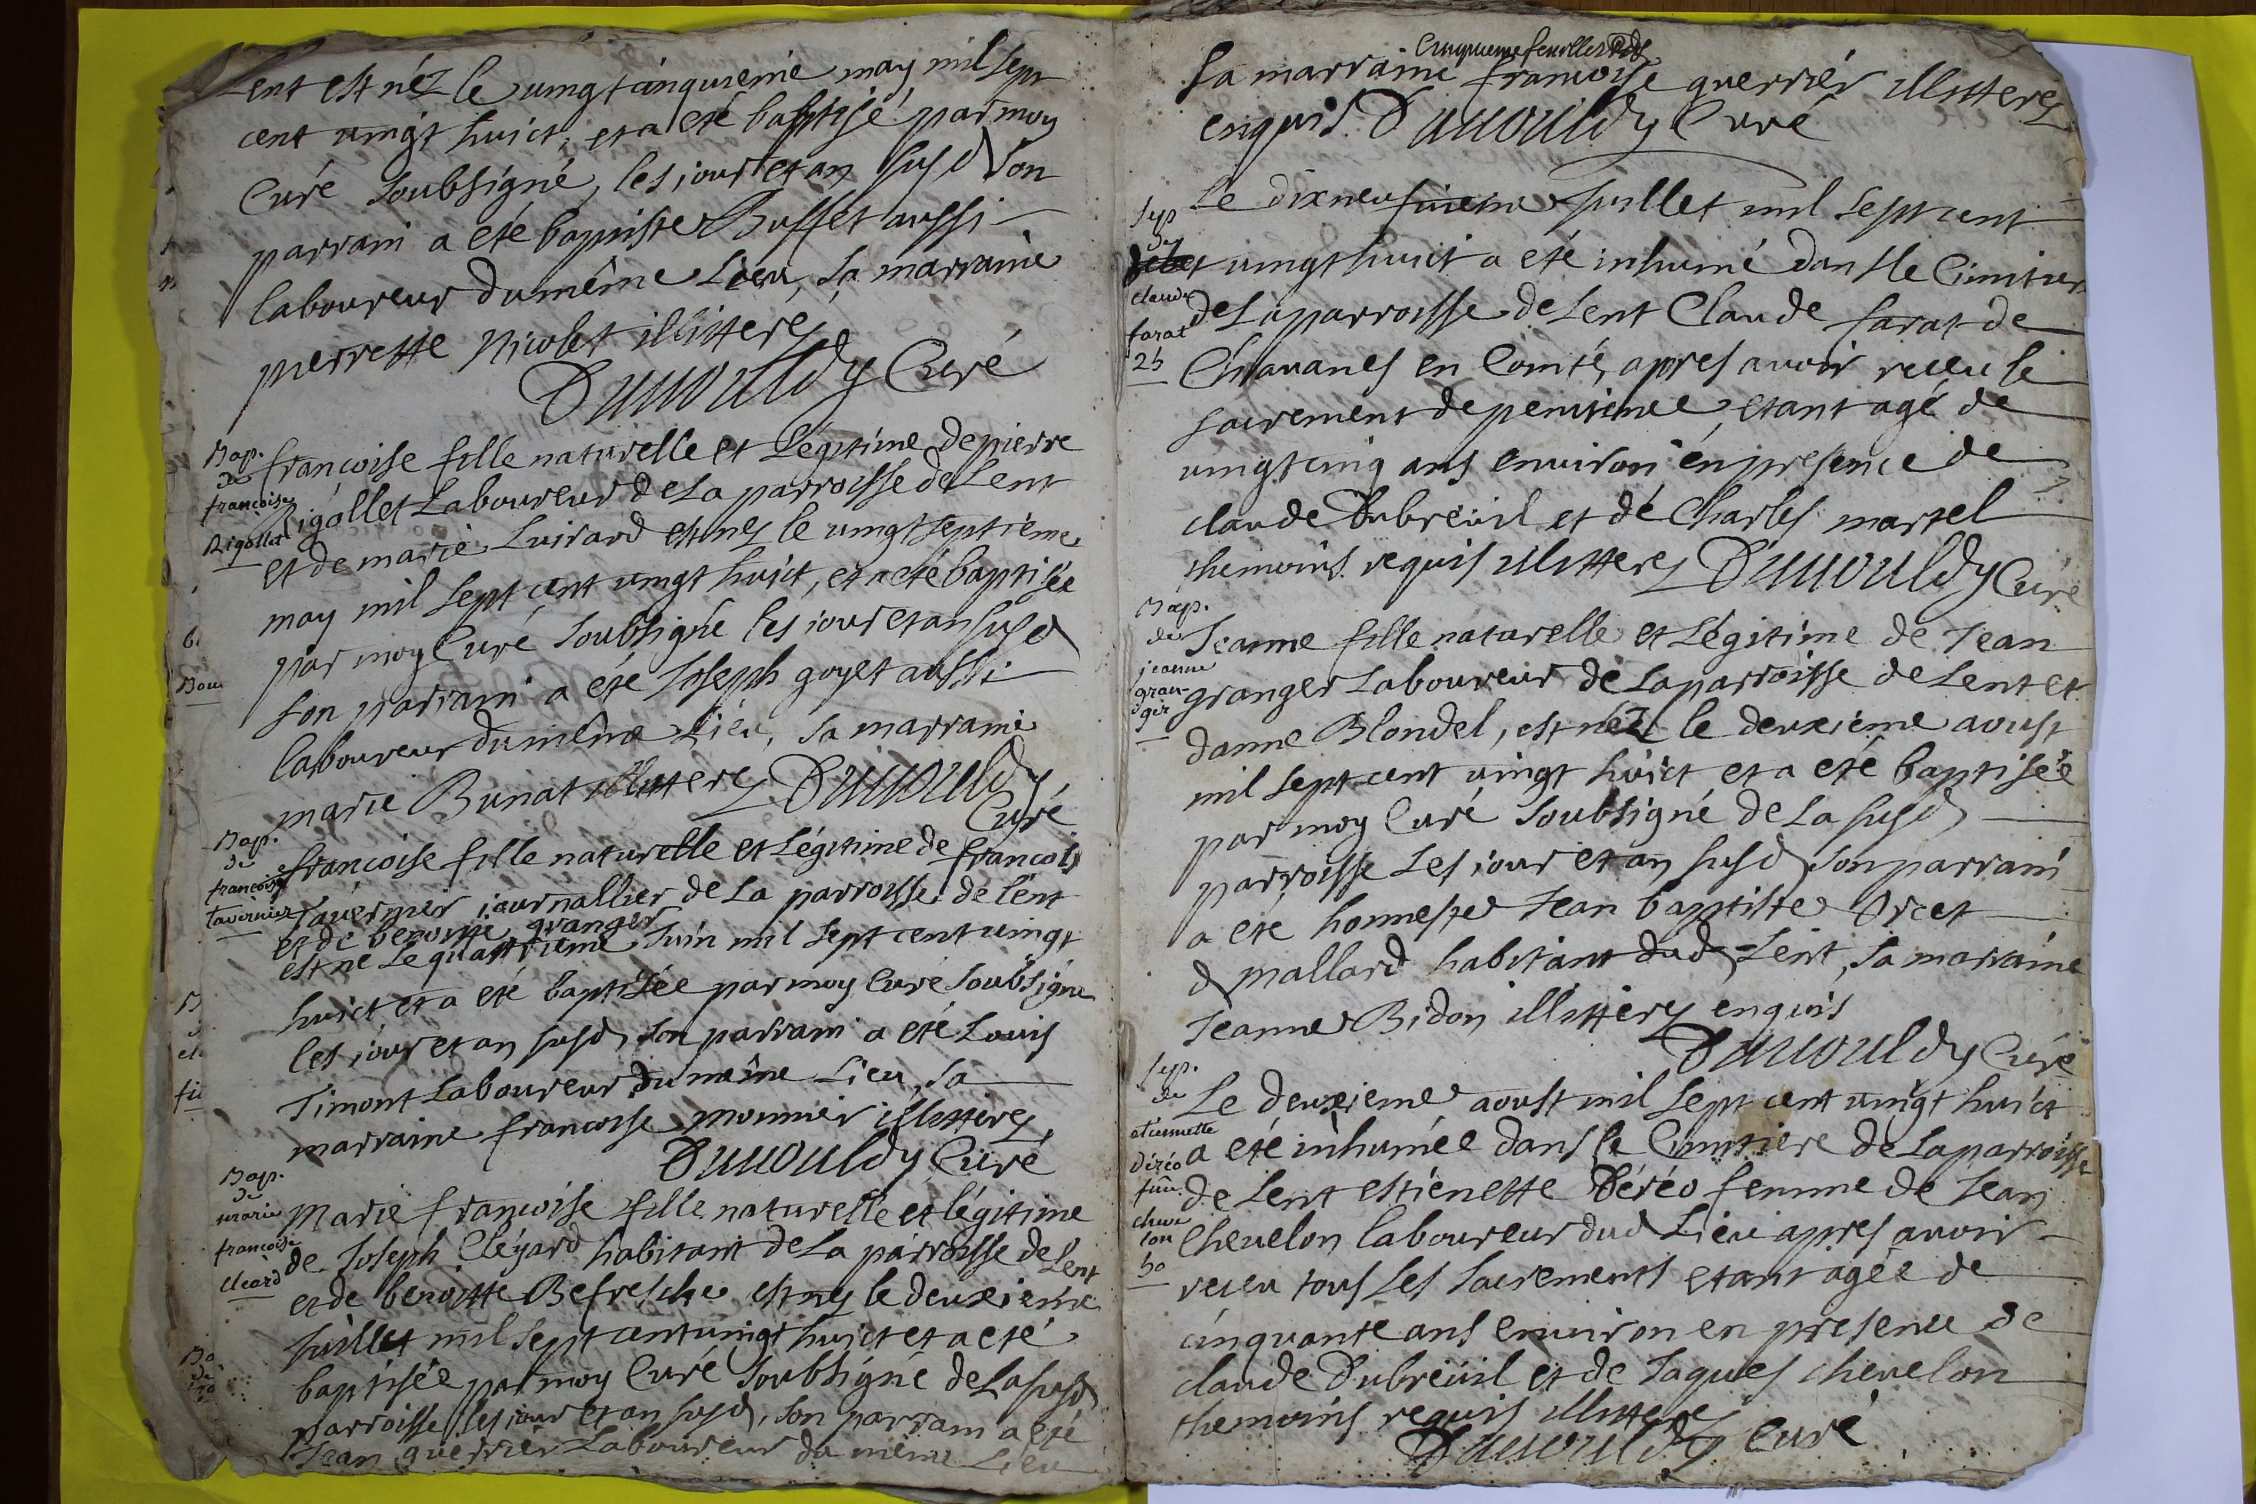 Lent est néz le vingtcinquieme may mil sept
cent vingt huict, et a eté baptisé par moy
Curé soubsigné, les jour et an susd son
parrain a eté baptiste Buffet aussi
laboureur du même Lieu, sa marraine
pierrette Nicolet illitterez
Duvouldy Curé
Bap.
de
francoise
Rigollet
françoise fille naturelle et Légitime de pierre
Rigollet Laboureur de La parroisse de Lent
et de marie Luirard est nez le vingt septieme
may mil sept cent vingt huict, et a eté baptisée
par moy Curé soubsigné les jour et an susd
son parrain a eté Joseph goyet aussi
laboureur du même Lieu, sa marraine
marie Bunat illitterez Duvouldy
Curé
Bap.
de
francoise
tavernier
francoise fille naturelle et Légitime de francois
tavernier journallier de La parroisse de Lent
et de benoitte granger
est ne Le quattrieme Juin mil sept cent vingt
huict et a eté baptisée par moy Curé soubsigné
les jour et an susd, son parrain a eté Louis
Timont Laboureur du même Lieu, sa
marraine francoise monnier illitterez
Duvouldy Curé
Bap.
de
marie
francoise
cleard
Marie francoise fille naturelle et légitime
de Joseph Cléyard habitant de La parroisse de Lent
et de benoitte Befresche est nez le deuxieme
Juillet mil sept cent vingt huict et a eté
baptisée par moy Curé soubsigné de La susd
parroisse les jour et an susd, son parrain a eté
Jean guerrier Laboureur du même Lieu
Cinquieme feuillet
sa marraine francoise guerrier illitterez
enquis Duvouldy Curé
Sep
de
claude
farat
25
Le dixneufvieme Juillet mil sept cent
vingt huict a eté inhumé dans le Cimitier
de La parroisse de Lent Claude farat de
Chavanes en Comté, apres avoir receu le
sacrement de penitence, etant agé de
vingt cinq ans environ en presence de
claude Dubreüil et de Charles martel
themoins requis illitterez Duvouldy Curé
Bap.
de
jeanne
gran-
ger
Jeanne fille naturelle et Légitime de Jean
granger Laboureur de La parroisse de Lent et
danne Blondel, est néz le deuxieme aoust
mil sept cent vingt huict et a eté baptisée
par moy Curé soubsigné de La susd
parroisse Les jour et an susd son parrain
a eté honneste Jean baptiste Orcet
d mallard habitant dud Lent, sa marraine
Jeanne Bidon illitterez enquis
Duvouldy Curé
Sep.
de
etiennette
déréo
fem.
cheve
lon
50
Le deuxieme aoust mil sept cent vingt huict
a eté inhumée dans le Cimitiere de La parroisse
de Lent estienette Déréo femme de Jean
Chevelon laboureur dud Lieu apres avoir
receu tous les sacrements etant agée de
cinquante ans environ en presence de
claude Dubreüil et de Jaques chevelon
themoins requis illitterez
Duvouldy Curé